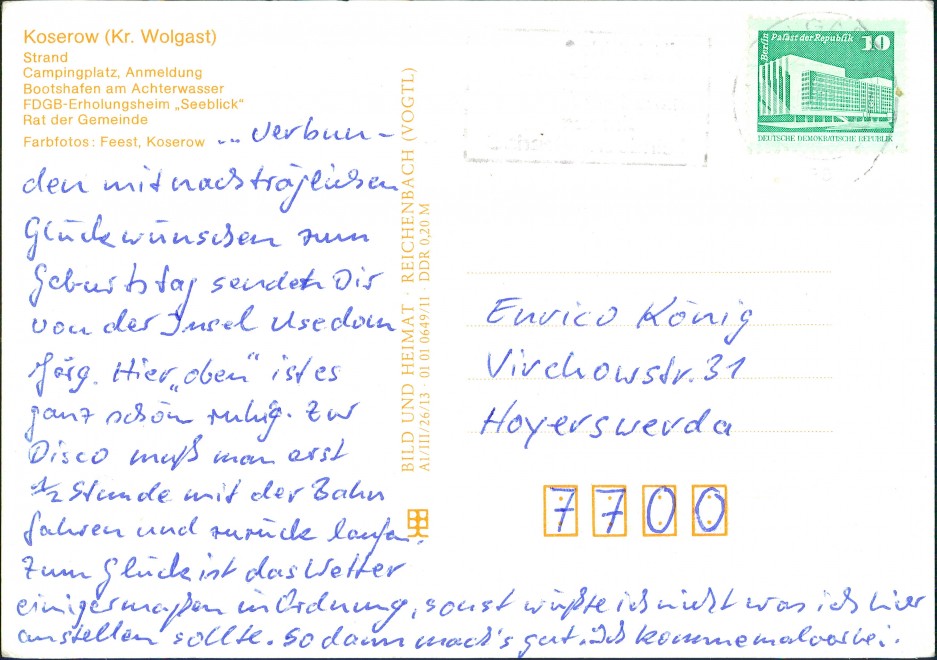 Koserow (Kr. Wolgast)
Strand
Campingplatz, Anmeldung
Bootshafen am Achterwasser
FDGB-Erholungsheim „Seeblick"
Rat der Gemeinde
Farbfotos: Feest, Koserow
... Verbun-
den mit nachträglichen
Glückwünschen zum
Geburtstag sendet Dir
von der Insel Usedom
Jörg. Hier „oben" ist es
ganz schön ruhig. Zur
Disco muß man erst
1/2 Stunde mit der Bahn
fahren und zurück laufen.
Zum Glück ist das Wetter
einigermaßen in Ordnung, sonst wüßte ich nicht was ich hier
anstellen sollte. So dann mach's gut. Ich komme mal vorbei.
BILD UND HEIMAT · REICHENBACH (VOGTL)
A1/III/26/13 · 01 01 0649/11 · DDR 0,20 M
Berlin Palast der Republik 10
DEUTSCHE DEMOKRATISCHE REPUBLIK
Enrico König
Virchowstr. 31
Hoyerswerda
7700